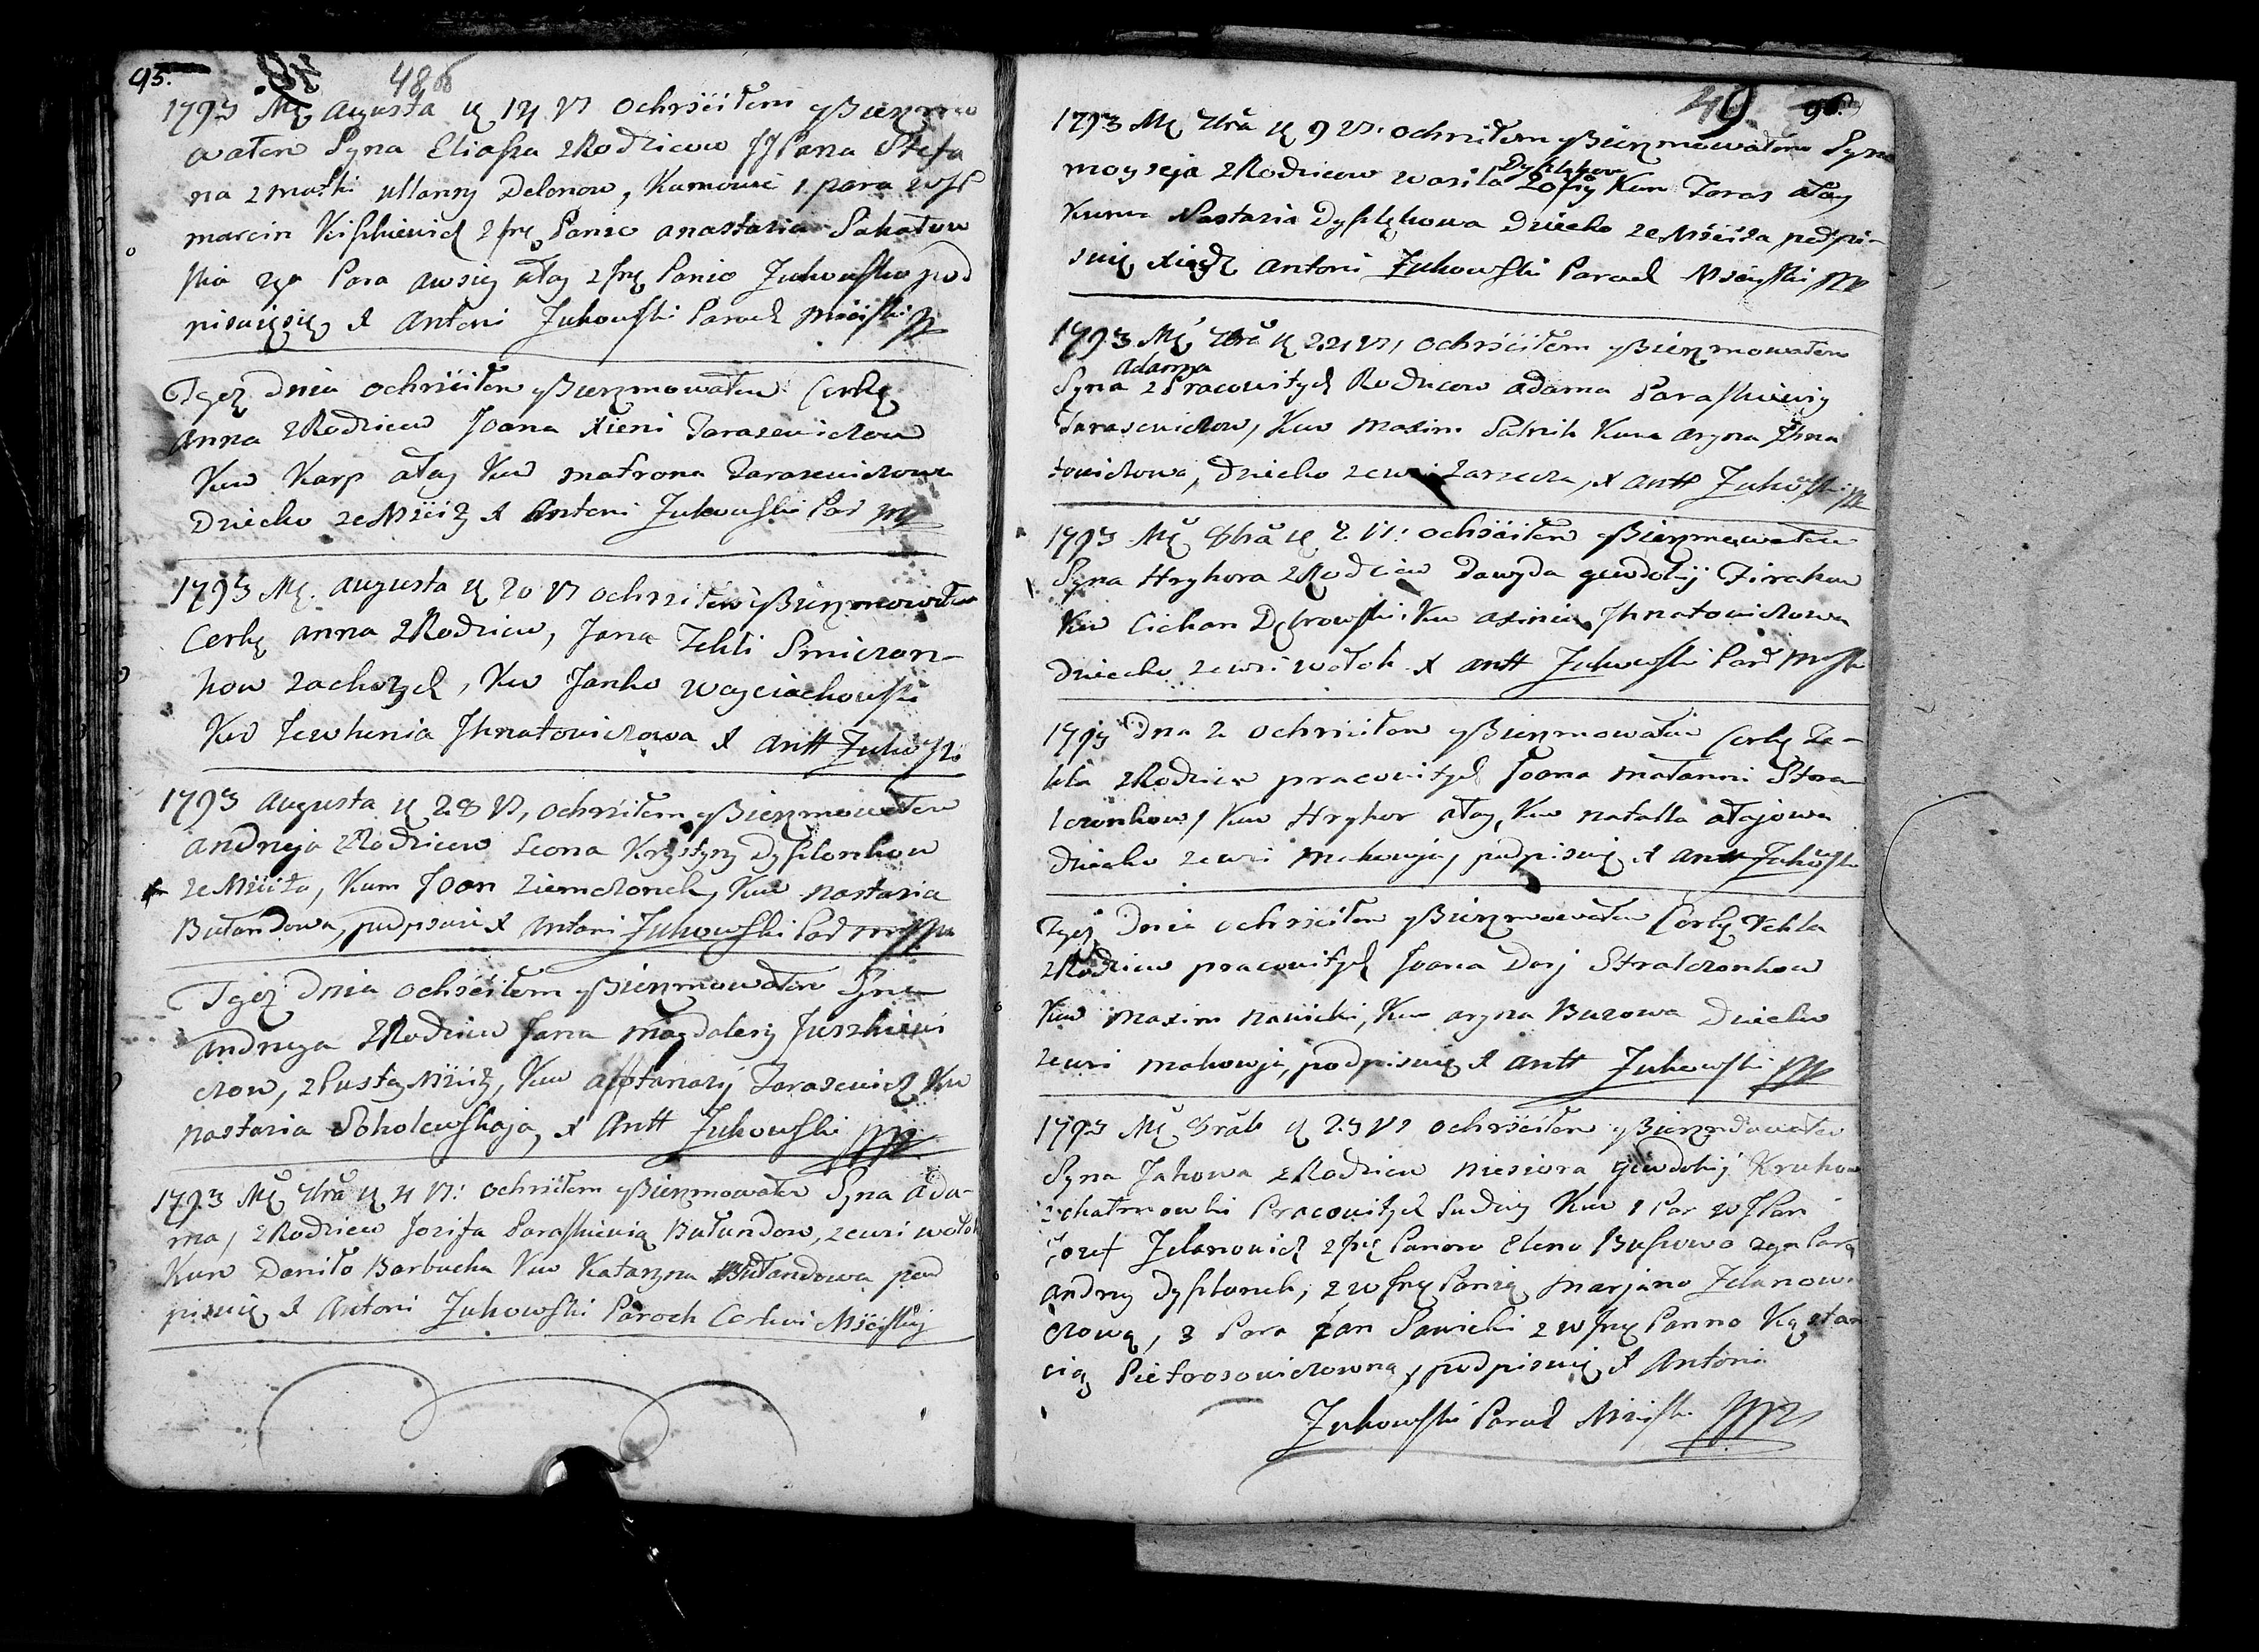 95. 48. 48 об
1793 Mę Augusta ą 14 V1 ochrściłem y Bierzmo
wałem Syna Eliasza z Rodzicow JJ Pana Stefa
na z matki Ullanny Delonow, Kumowie 1 para WJP
marcin Kiszkiewicz z Jmę Panio anastasia Sakałow
ska 2ga Para Awsiey ałay z Jmę Panio Zukowsko pod
pisuięsię X Antoni Zukowski Paroch Mściski
Tgeż Dnia ochrściłem y Bierzmowałem Corkę
Anna z Rodzicow Joana Xieni Tarasewiczow
Kum Karp ałay Kum matrona Tarasewiczowa
Dziecko ze Mściż X Antoni Zukowski Par
1793 Mę. Augusta ą 20 V1 ochrzciłem y Bierzmowałem
Corkę Anna z Rodzicow, Jana Tekli Smiczon-
kow zachożych, Kw Janko Woyciechowski
Kw Jewhenia Jhnatowiczowa X Antt Zukow
1793 Augusta ą 28 V1, ochrściłem y Bierzmowałem
Andreja z Rodzicow Leona Krystyny Dyszlonkow
ze Mściża, Kum Joan Ziemczonek, Kum Nastasia
Butandowa, podpisuie X Antoni Zukowski Par
Tgeż Dnia ochrściłem y Bierzmowałem Syna
Andreya z Rodzicow Jana Magdaleny Juszkiewi
czow, z Pustey Mściż, Kum Apptanazy Tarasewicz Kw
Nastasia Sokolewskaja, X Antt Zukowski
1793 Mę 7bra ą 4 V1: ochrściłem y Bierzmowałem Syna Ada-
ma, z Rodzicow Jozifa Paraskiewią Butundow, ze wsi Wołok
Kum Daniło Barbucha Kw Katarzyna Butandowa pod
pisuię X Antoni Zukowski Paroch Cerkwi Mściskiej
49 96.
1793 Mę 7bra ą 9 V1: ochrściłem y Bierzmowałem Syna
Moyseja z Rodzicow Wasila Zofiy Dyszlękow Kum Taras ałay
Kuma Nastasia Dyszlękowa Dziecko ze Mściża, podpi-
suię Xiądz Antoni Zukowski Paroch Mściski
1793 Mę 7bra ą 22 V1, ochrściłem y Bierzmowałem
Syna Adama z Pracowitych Rodzicow Adama Paraskiewiy
Tarasewiczow, Kum Maxim Satnik Kuma Aryna Jhna
towiczowa, Dziecko ze wsi Zarzecza, X Antt Zukowski
1793 Mę 8bra ą 2 V1: ochrściłem y Bierzmowałem
Syna Hryhora z Rodzicow Dawyda Gewdokij Zirakow
Kw Cichan Dąbrowski Kw Axinia Jhnatowiczowa
Dziecko ze wsi Wołok X Antt Zukowski Par
1793 Dnia 2 ochrściłem y Bierzmowałem Corkę Te-
kla z Rodzicow pracowitych Joana Matanni Stra
lczonkow, Kum Hryhor ałay, Kw Natalla ałajowa
Dziecko ze wsi Mohowja, podpisuię X Antt Zukowski
Tgeż Dnia ochrściłem y Bierzmowałem Corkę Tekla
z Rodzicow pracowitych Joana Darj Stralczonkow
Kw Maxim Nowicki, Kw Aryna Buzowa Dziecko
ze wsi Mohowja, podpisuię X Antt Zukowski
1793 Mę 8bra ą 23 V1 ochrściłem y Bierzmowałem
Syna Jakowa z Rodzicow Niesiora Gewdokij Krukow
Pracowitych Ludziy Kum 1 Par WJPan
Jozef Zdanowicz z Jmę Panow Eleno Buszowo 2ga Para
Andrey Dyszlonek, z WJmę Panią Marjano Zdanowi
czową, 3 Para Jan Sawicki z WJmę Panno Kąstan
cią Pietrosowiczowną, podpisuię X Antoni
Zukowski Paroch Mściski